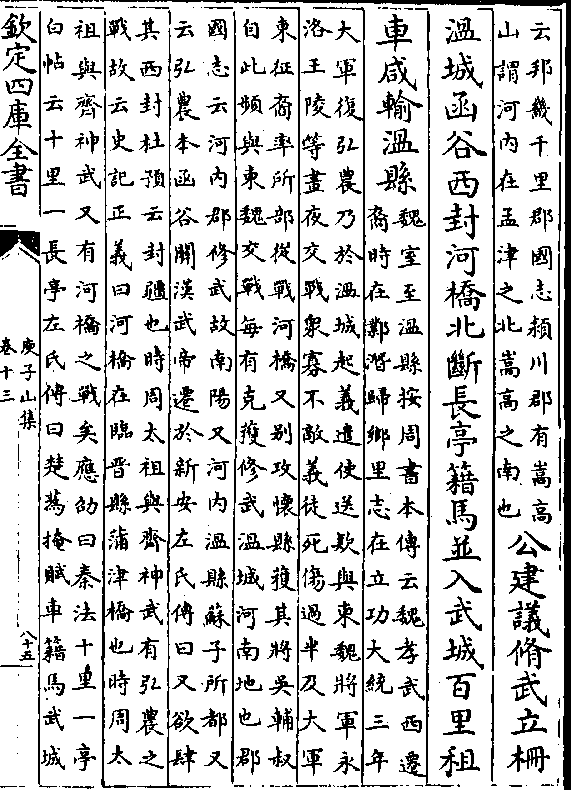 云邦畿千里郡國志潁川郡有嵩高
山謂河内在孟津之北嵩高之南也
公建議脩武立柵
温城函谷西封河橋北斷長亭籍馬並入武城百里租
車咸輸温縣
魏室至温縣按周書本傳云魏孝武西遷
裔時在鄴潛歸鄉里志在立功大統三年
大軍復弘農乃於温城起義遣使送欵與東魏將軍永
洛王陵等晝夜交戰衆寡不敵義徒死傷過半及大軍
東征裔率所部從戰河橋又别攻懷縣獲其將吳輔叔
自此頻與東魏交戰每有克獲修武温城河南地也郡
國志云河内郡修武故南陽又河内温縣蘇子所都又
云弘農本函谷關漢武帝遷於新安左氏傳曰又欲肆
其西封杜預云封疆也時周太祖與齊神武有弘農之
戰故云史記正義曰河橋在臨晋縣蒲津橋也時周太
祖與齊神武又有河橋之戰矣應劭曰秦法十里一亭
白帖云十里一長亭左氏傳曰楚蔿掩賦車籍馬武城
欽定四庫全書
庾子山集
卷十三
八十五